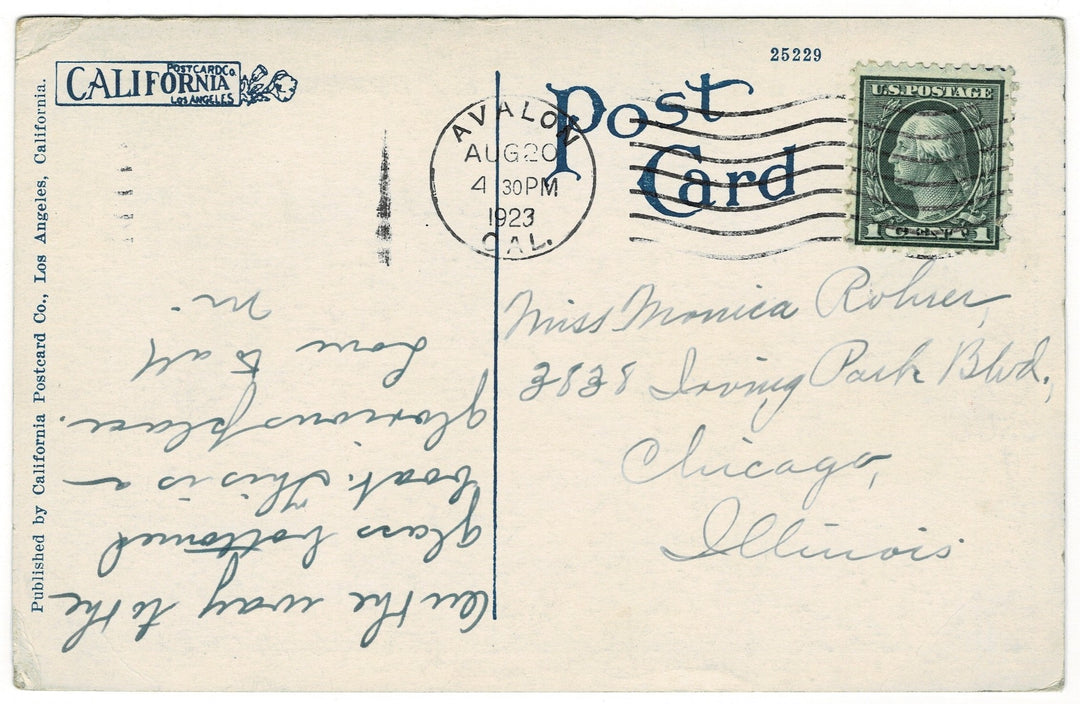 CALIFORNIA
POSTCARD Co.
LOS ANGELES
25229
Post
Card
AVALON
AUG 20
4 30 PM
1923
CAL.
U.S. POSTAGE
1 CENT 1
Published by California Postcard Co., Los Angeles, California.
On the way to the
glass bottomed
boat. This is a
glorious place.
Love to all
M
Miss Monica Rohrer,
3838 Irving Park Blvd.,
Chicago,
Illinois